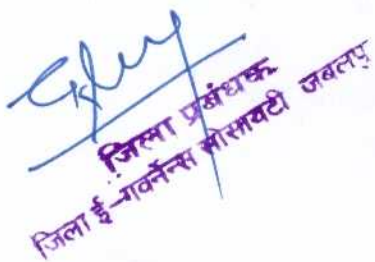 जिला प्रबंधक
जिला ई-गवर्नेन्स सोसायटी जबलपु